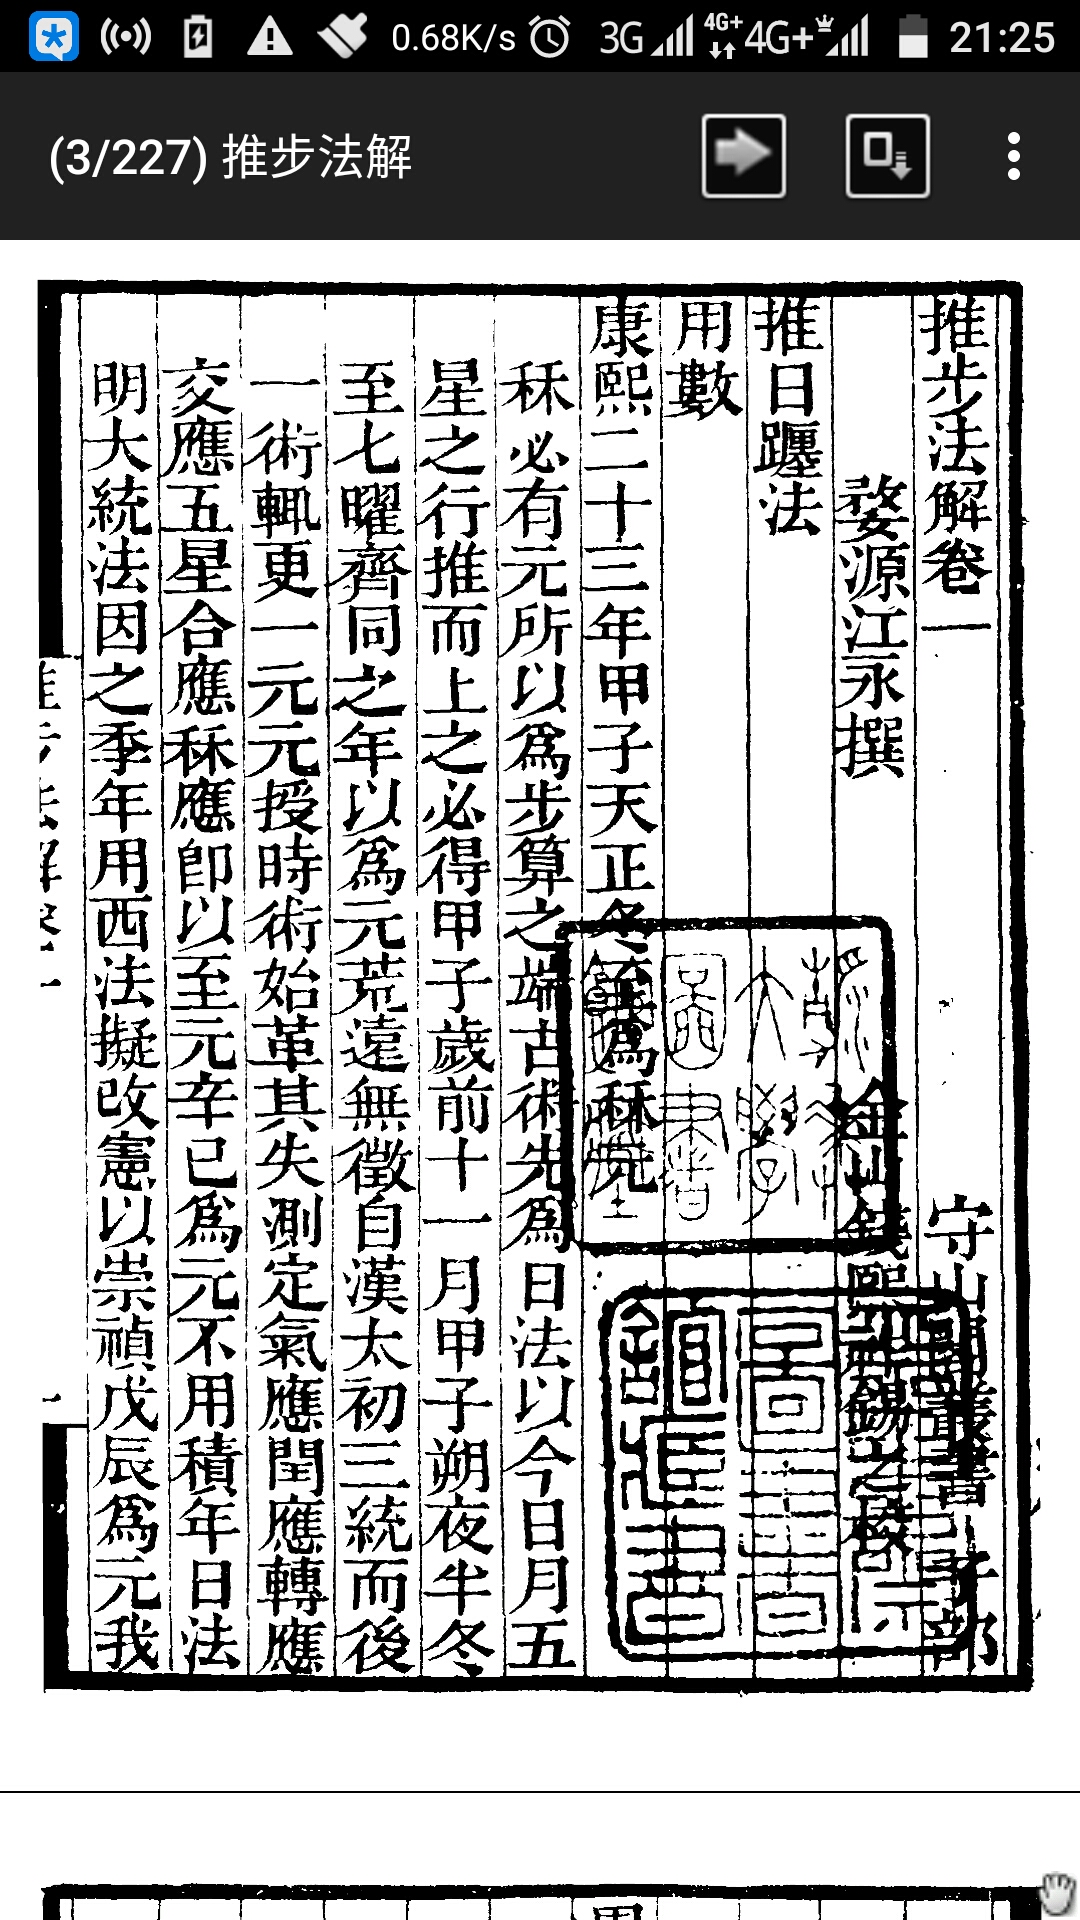 0.68K/s 3G 4G+ 4G+ 21:25
(3/227) 推步法解
推步法解卷一 守山閣叢書 子部
婺源江永撰 金山錢熙祚錫之校
推日躔法
用數
康熙二十三年甲子天正冬至爲秝元
秝必有元所以爲步算之端古術先爲日法以今日月五
星之行推而上之必得甲子歲前十一月甲子朔夜半冬
至七曜齊同之年以爲元荒遠無徵自漢太初三統而後
一術輒更一元元授時術始革其失測定氣應閏應轉應
交應五星合應秝應卽以至元辛巳爲元不用積年日法
明大統法因之季年用西法擬改憲以崇禎戊辰爲元我